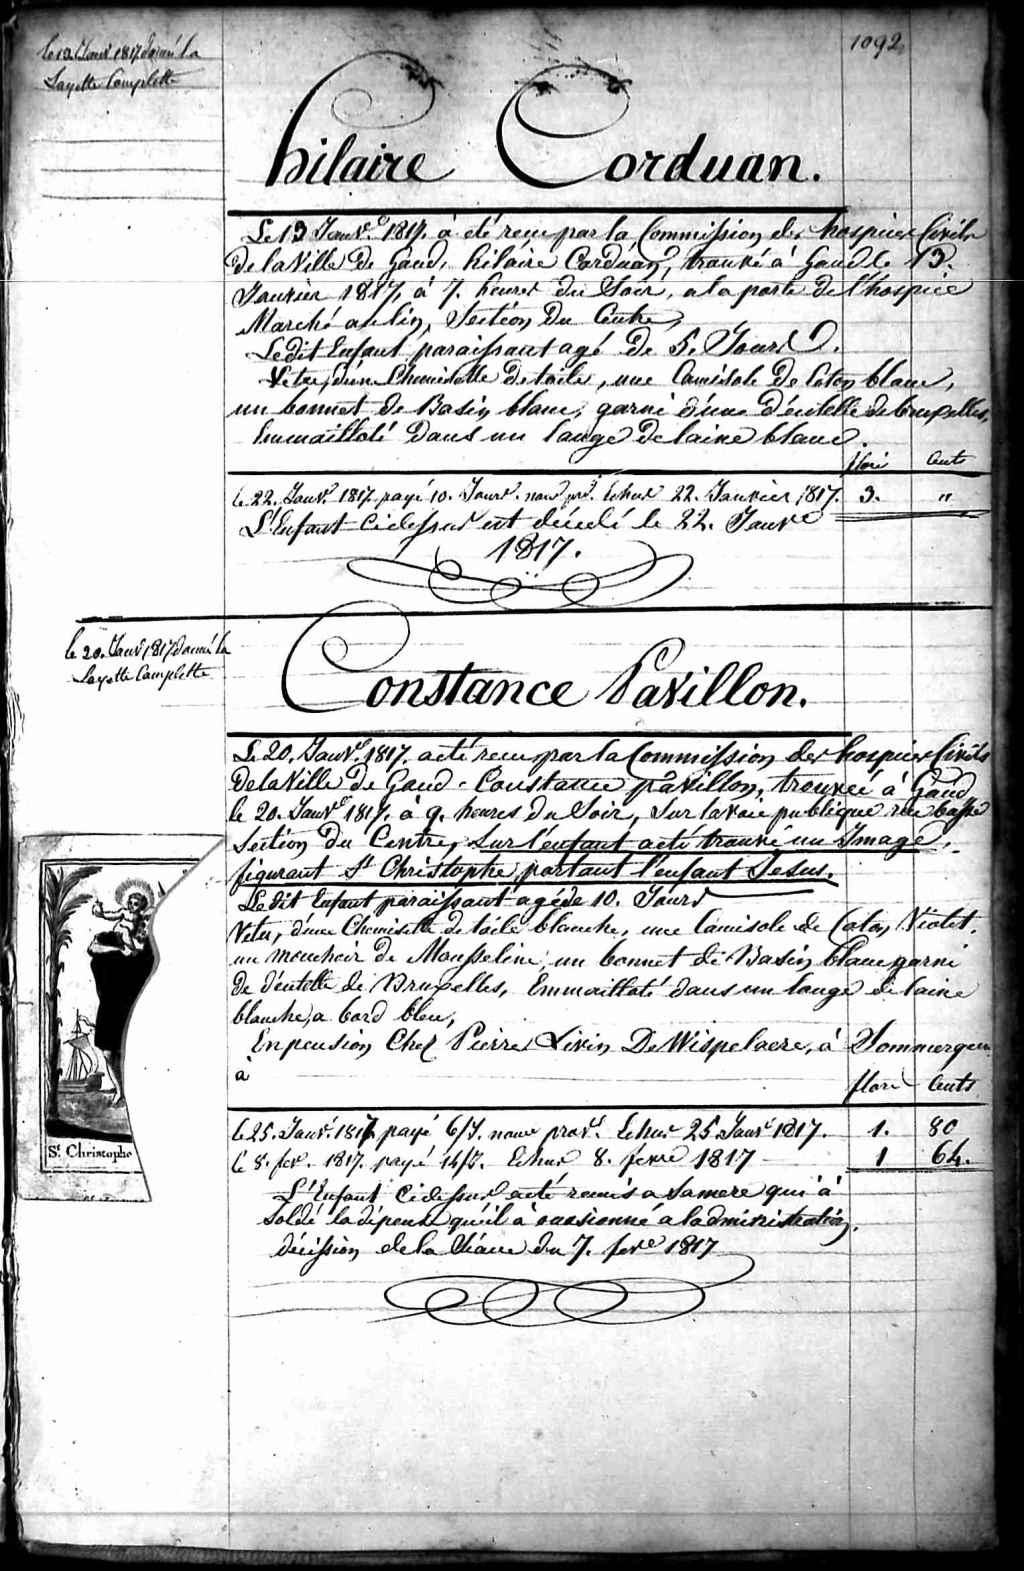 1092
le 13 Janv 1817 donné la
Layette Complette
hilaire Corduan.
Le 13 Janv.e 1817. à été reçu par la Commission des hospices Civils
De la Ville De Gand, hilaire Corduan, trouvé à Gand le 13.
Janvier 1817, à 7. heures du Soir, a la porte de l'hospice
Marché au lin, Section Du Centre,
Le dit Enfant paraissant agé de 5. Jours.
Vetu, d'une Chemisette De toile, une Camisole De Coton blanc,
un bonnet de Basin blanc, garni d'une D'entelle de bruxelles,
Emmailloté Dans un lange De laine blanc.
flori Cents
le 22. Janv.r 1817 payé 10. Jours. nour Echus 22. Janvier 1817. 3. "
L'Enfant Cidessus est décédé le 22. Janv.e
1817.
le 20. Janv 1817 donné la
Layette Complette
Constance Pavillon.
Le 20. Janv.e 1817. a été recu par la Commission des hospices Civils
De la Ville De Gand - Constance pavillon, trouvée à Gand
le 20. Janv.e 1817. à 9. heures du Soir, Sur la voie publique rue basse
Section du Centre, Sur l'enfant a été trouvé un Image,
figurant St Christophe, portant l'enfant Jesus.
Le dit Enfant paraissant agé de 10. Jours
Vetu, d'une Chemisette de toile blanche, une Camisole de Coton Violet,
un mouchoir de Mousseline, un bonnet de Basin blanc garni
De d'entelle de Bruxelles, Emmailloté dans un lange de laine
blanche, a bord bleu,
En pension Chez Pierre Livin De Wispelaere, à Sommergem
à
flori Cents
le 25. Janv.r 1817 payé 6/J. nour prov.r Echus 25. Janv.r 1817. 1. 80
le 8. fev.r 1817. payé 14/J. Echus 8. fevre 1817 1 64.
L'Enfant Cidessus a été remis a sa mere qui à
Soldé la dépense qu'il à occasionné a ladministration.
décission de la Séance du 7. fev.e 1817
St. Christophe